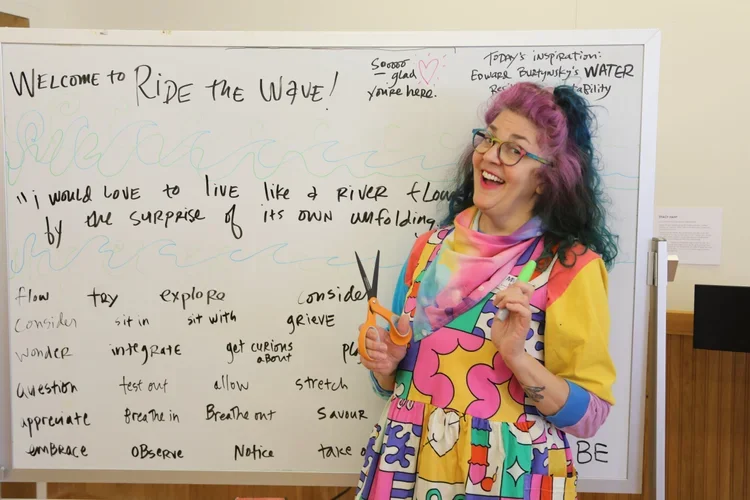 WELCOME TO RIDE THE WAVE!
Sooooo
glad
you're here.
TODAY'S inspiration:
Edward Burtynsky's WATER
"i would LOVE to live like a RIVER
by the SURPRISE of its own unfolding
flow try explore consider
consider sit in sit with GRIEVE
wonder integrate get curious about
Question test out allow stretch
appreciate Breathe in Breathe out Savour
embrace OBSERVE Notice take
BE